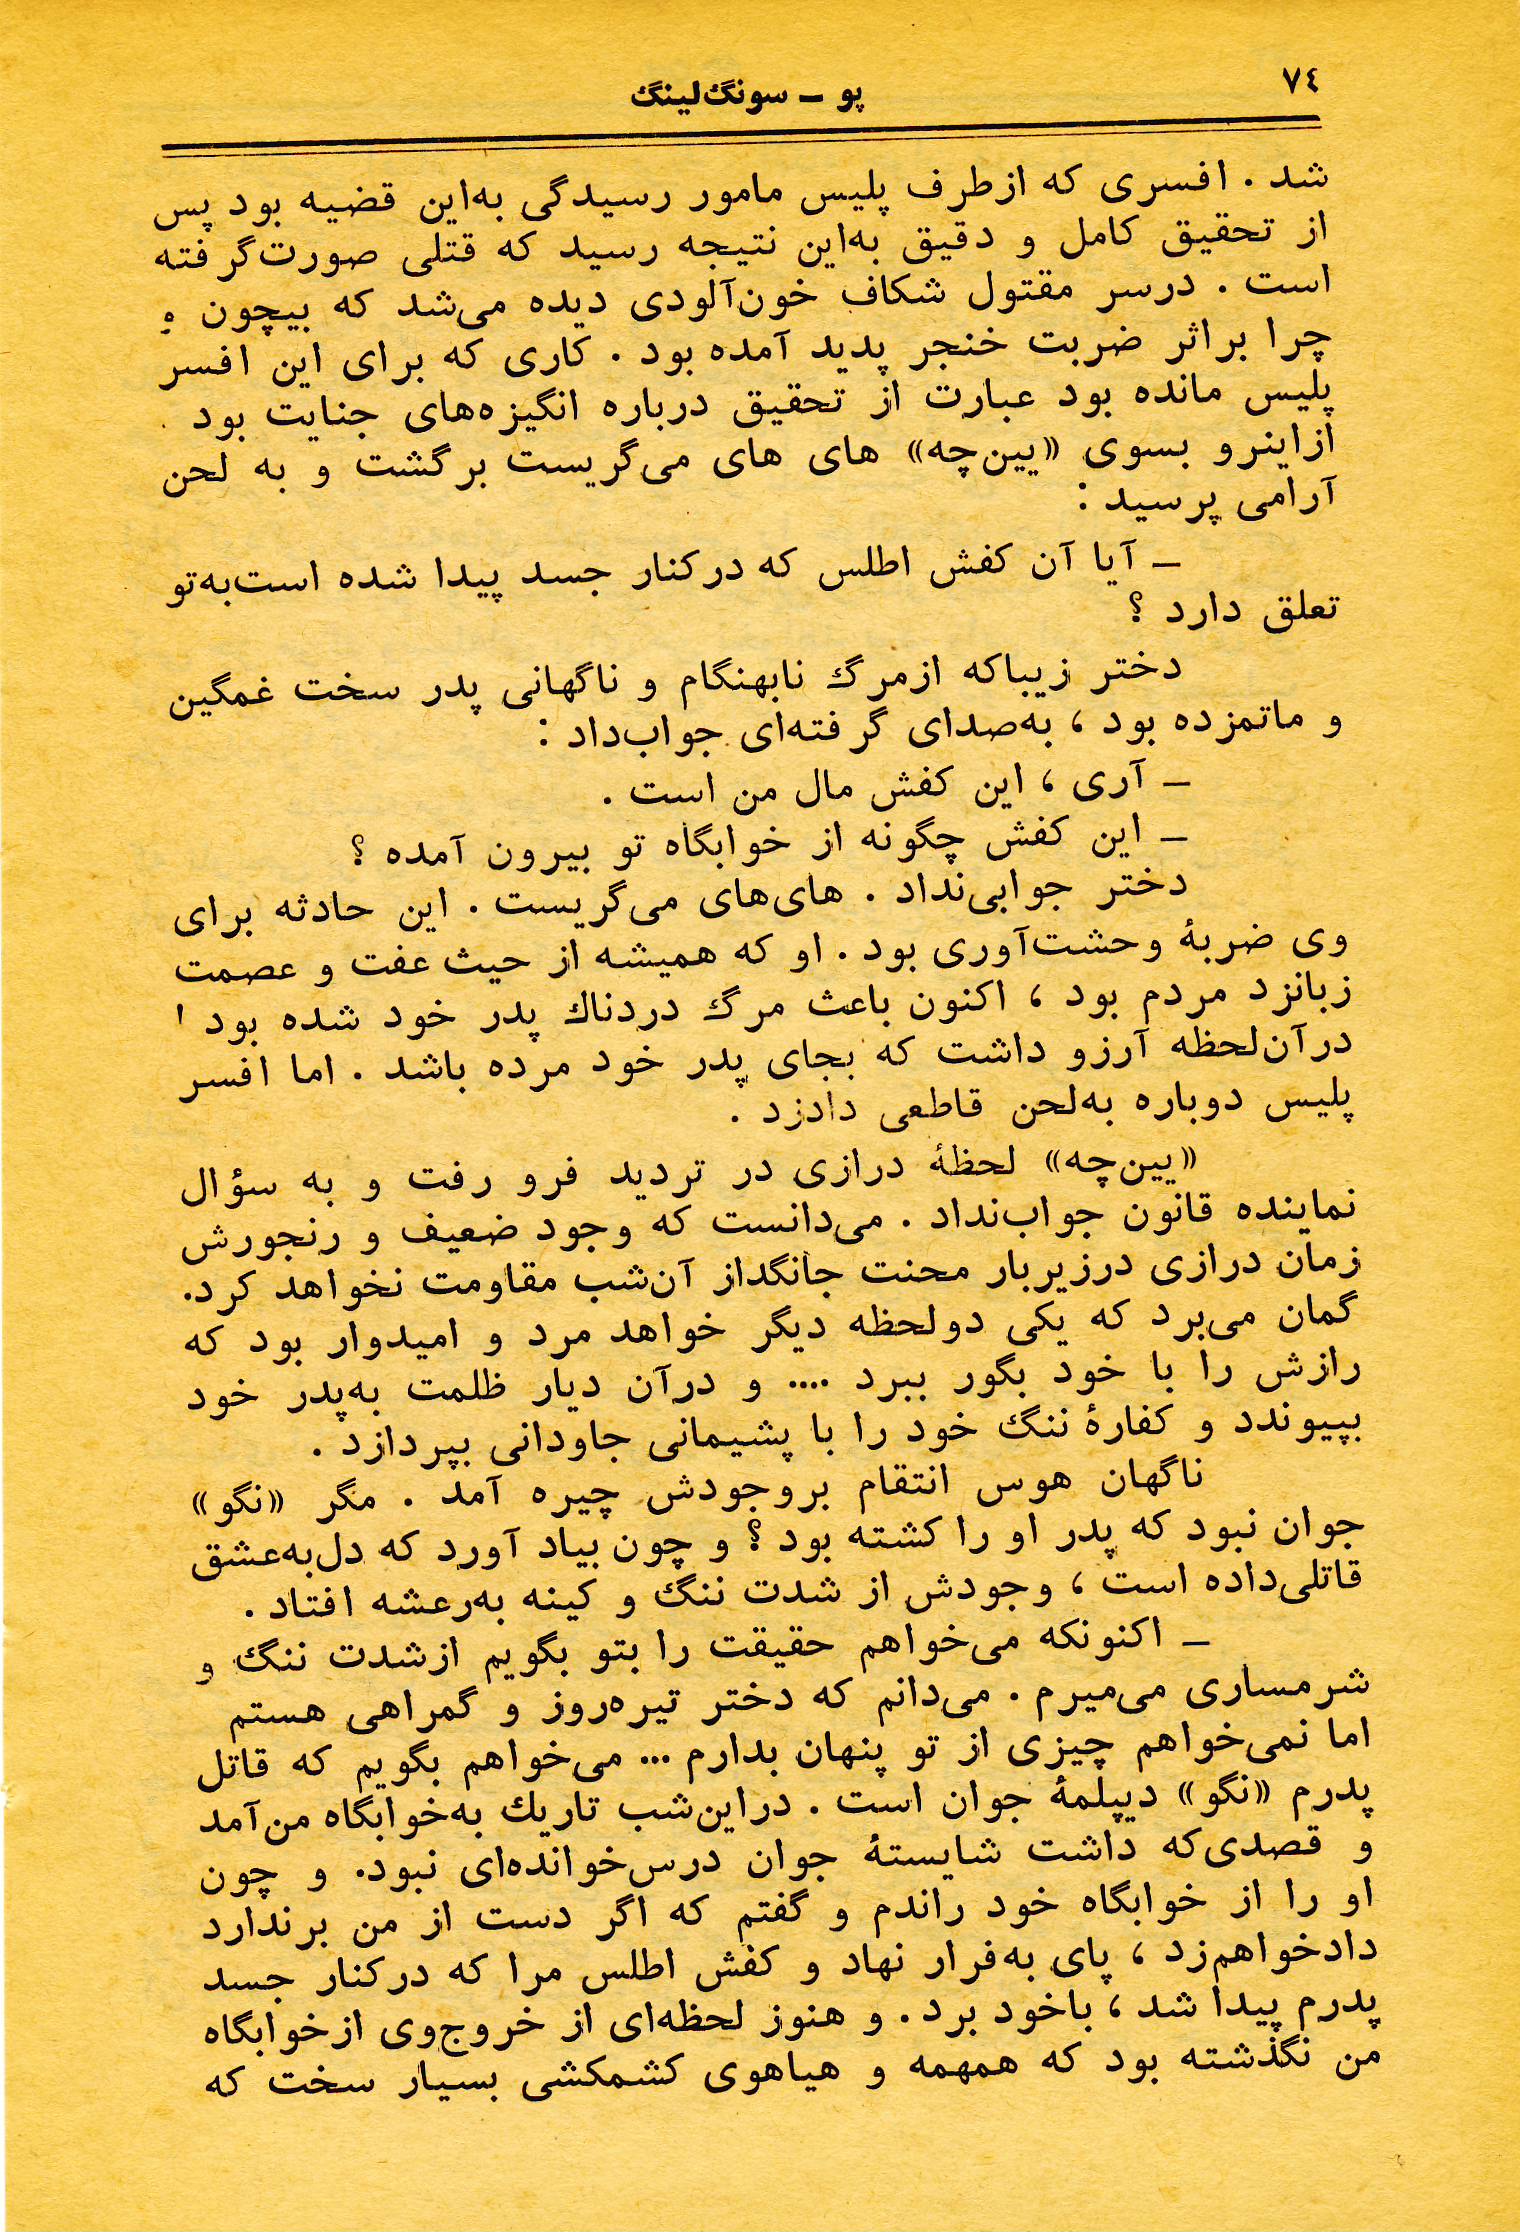 ۷۴
پو ـ سونگ‌لینگ
شد . افسری که ازطرف پلیس مامور رسیدگی به‌این قضیه بود پس
از تحقیق کامل و دقیق به‌این نتیجه رسید که قتلی صورت‌گرفته
است . درسر مقتول شکاف خون‌آلودی دیده می‌شد که بیچون و
چرا براثر ضربت خنجر پدید آمده بود . کاری که برای این افسر
پلیس مانده بود عبارت از تحقیق درباره انگیزه‌های جنایت بود .
ازاینرو بسوی «یین‌چه» های های می‌گریست برگشت و به لحن
آرامی پرسید :
ـ آیا آن کفش اطلس که درکنار جسد پیدا شده است‌به‌تو
تعلق دارد ؟
دختر زیباکه ازمرگ نابهنگام و ناگهانی پدر سخت غمگین
و ماتمزده بود ، به‌صدای گرفته‌ای جواب‌داد :
ـ آری ، این کفش مال من است .
ـ این کفش چگونه از خوابگاه تو بیرون آمده ؟
دختر جوابی‌نداد . های‌های می‌گریست . این حادثه برای
وی ضربهٔ وحشت‌آوری بود . او که همیشه از حیث عفت و عصمت
زبانزد مردم بود ، اکنون باعث مرگ دردناك پدر خود شده بود !
درآن‌لحظه آرزو داشت که بجای پدر خود مرده باشد . اما افسر
پلیس دوباره به‌لحن قاطعی دادزد .
«یین‌چه» لحظهٔ درازی در تردید فرو رفت و به سؤال
نماینده قانون جواب‌نداد . می‌دانست که وجود ضعیف و رنجورش
زمان درازی درزیربار محنت جانگداز آن‌شب مقاومت نخواهد کرد.
گمان می‌برد که یکی دولحظه دیگر خواهد مرد و امیدوار بود که
رازش را با خود بگور ببرد .... و درآن دیار ظلمت به‌پدر خود
بپیوندد و کفارهٔ ننگ خود را با پشیمانی جاودانی بپردازد .
ناگهان هوس انتقام بروجودش چیره آمد . مگر «نگو»
جوان نبود که پدر او را کشته بود ؟ و چون بیاد آورد که دل‌به‌عشق
قاتلی‌داده است ، وجودش از شدت ننگ و کینه به‌رعشه افتاد .
ـ اکنونکه می‌خواهم حقیقت را بتو بگویم ازشدت ننگ و
شرمساری می‌میرم . می‌دانم که دختر تیره‌روز و گمراهی هستم
اما نمی‌خواهم چیزی از تو پنهان بدارم ... می‌خواهم بگویم که قاتل
پدرم «نگو» دیپلمهٔ جوان است . دراین‌شب تاریك به‌خوابگاه من‌آمد
و قصدی‌که داشت شایستهٔ جوان درس‌خوانده‌ای نبود. و چون
او را از خوابگاه خود راندم و گفتم که اگر دست از من برندارد
دادخواهم‌زد ، پای به‌فرار نهاد و کفش اطلس مرا که درکنار جسد
پدرم پیدا شد ، باخود برد . و هنوز لحظه‌ای از خروج‌وی ازخوابگاه
من نگذشته بود که همهمه و هیاهوی کشمکشی بسیار سخت که